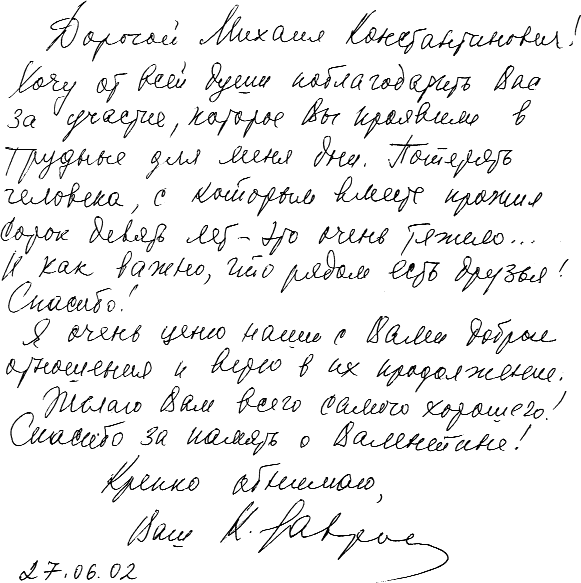 Дорогой Михаил Константинович!
Хочу от всей души поблагодарить Вас
за участие, которое Вы проявили в
трудные для меня дни. Потерять
человека, с которым вместе прожил
сорок девять лет – это очень тяжело...
И как важно, что рядом есть друзья!
Спасибо!
Я очень ценю наши с Вами добрые
отношения и верю в их продолжение.
Желаю Вам всего самого хорошего!
Спасибо за память о Валентине!
Крепко обнимаю,
Ваш К. Лавров
27.06.02